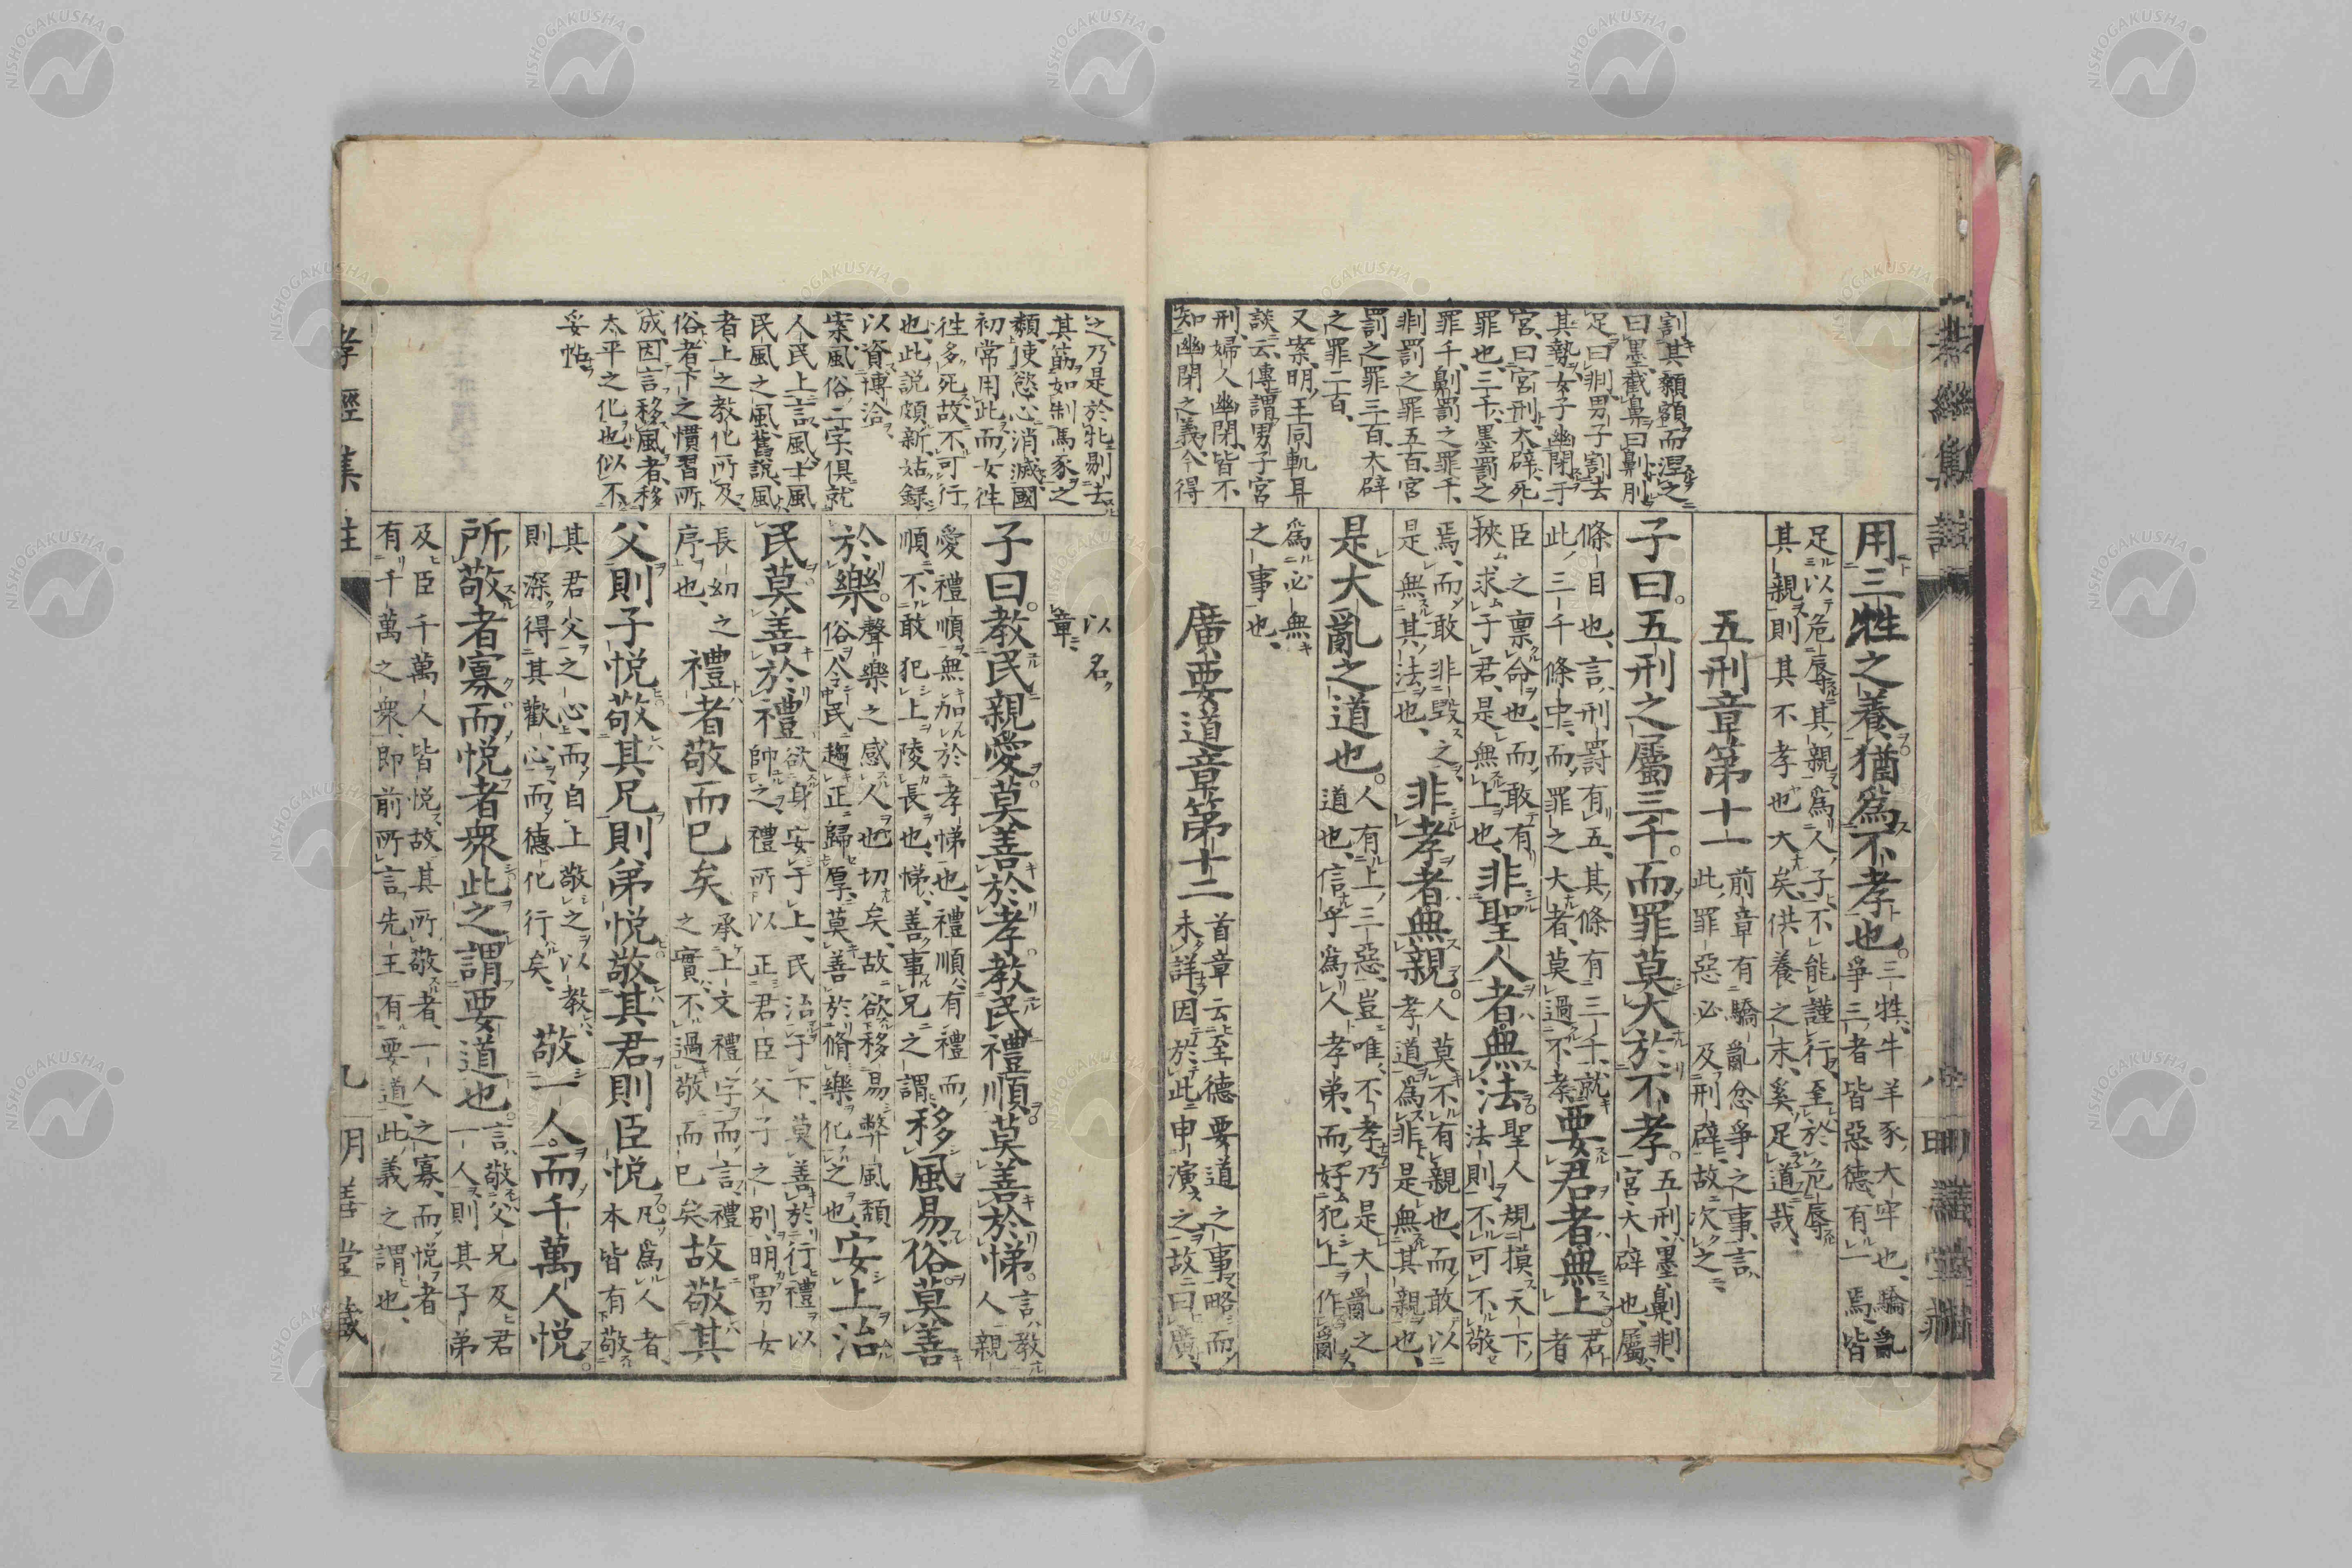 割其顙額而涅之
曰墨截鼻曰劓刖
足曰剕男子割去
其勢女子幽閉于
宮曰宮刑大辟死
罪也三千墨罰之
罪千劓罰之罪千
剕罰之罪五百宮
罰之罪三百大辟
之罪二百
又案明王同軌耳
談云傳謂男子宮
刑婦人幽閉皆不
知幽閉之義今得
用三牲之養猶爲不孝也。三牲牛羊豕大牢也驕亂
爭三者皆惡德有一焉皆
足以危辱其親爲人子不能謹行至於危辱
其親則其不孝也大矣供養之末奚足道哉
五刑章第十一 前章有驕亂忿爭之事言
此罪惡必及刑辟故次之
子曰。五刑之屬三千。而罪莫大於不孝。五刑墨劓剕
宮大辟也屬
條目也言刑罰有五其條有三千就
此三千條中而罪之大者莫過不孝
要君者無上。君者
臣之禀命也而敢有
挾求于君是無上也
非聖人者無法。聖人規摸天下
法則不可不敬
焉而敢非毀之
是無其法也
非孝者無親。人莫不有親也而敢以
孝道爲非是無其親也
是大亂之道也。人有上三惡豈唯不孝乃是大亂之
道也信乎爲人孝弟而好犯上作亂
爲必無
之事也
廣要道章第十二 首章云至德要道之事略而
未詳因於此申演之故曰廣
以名
章
之乃是於牝剔去
其筋如制馬豕之
類使慾心消滅國
初常用此而女往
往多死故不可行
也此説頗新姑録
以資博洽
案風俗二字俱就
人民上言風士風
民風之風舊説風
者上之教化所及
俗者下之慣習所
成因言移風者移
太平之化也似不
妥帖
子曰。教民親愛。莫善於孝。教民禮順。莫善於悌。言教
人親
愛禮順無加於孝悌也禮順有禮而
順不敢犯上陵長也悌善事兄之謂
移風易俗。莫善
於樂。聲樂之感人也切矣故欲移易弊風頽
俗令民趨正歸厚莫善於脩樂化之也
安上治
民莫善於禮 欲身安于上民治于下莫善於行禮以
帥之禮所以正君臣父子之別明男女
長幼之
序也
禮者敬而已矣 承上文禮字而言禮
之實不過敬而已矣
故敬其
父則子悦敬其兄則弟悦敬其君則臣悦 凡爲人者
本皆有敬
其君父之心而自上敬之以教
則深得其歡心而德化行矣
敬一人。而千萬人悦。
所敬者寡而悦者衆此之謂要道也。言敬父兄及君
一人則其子弟
及臣千萬人皆悦故其所敬者一人之寡而悦者
有千萬之衆即前所言先王有要道此義之謂也
孝經集註
九
明善堂藏